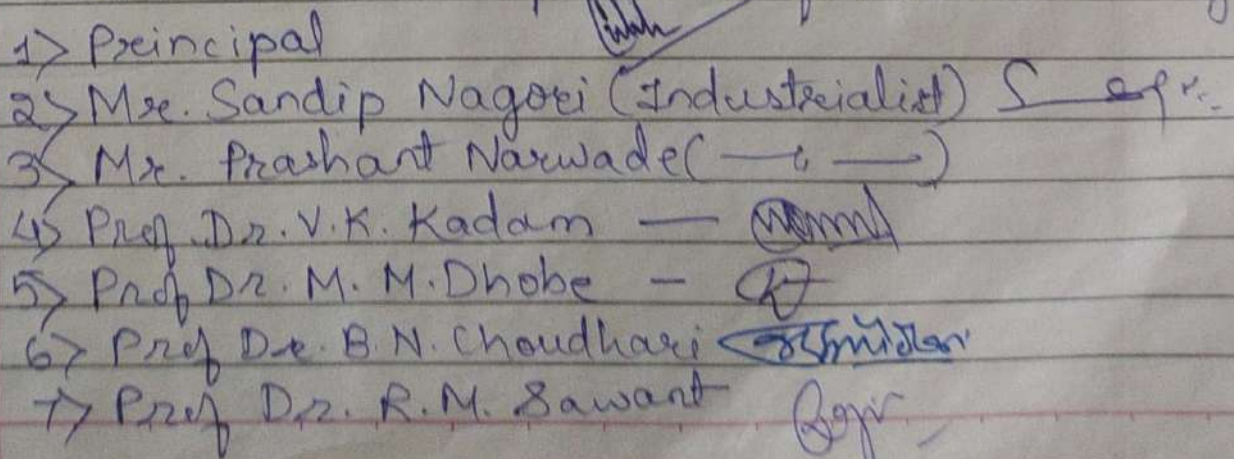 1) Principal
2) Mr. Sandip Nagori (Industrialist)
3) Mr. Prashant Narwade ( —"— )
4) Prof. Dr. V.K. Kadam —
5) Prof Dr. M. M. Dhobe -
6) Prof Dr. B.N. Choudhari
7) Prof Dr. R.M. Sawant